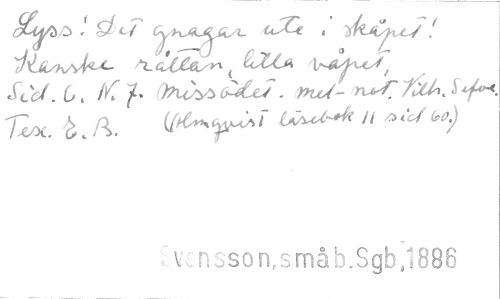 Lyss! Det gnagar ute i skåpet!
Kanske råttan, lilla våpet,
Sid. 6. N. 7. Missödet. mel-not. Vilh. Sefve.
Tex. E. B. (Almqvist läsebok II sid 60.)
Svensson, småb. Sgb, 1886